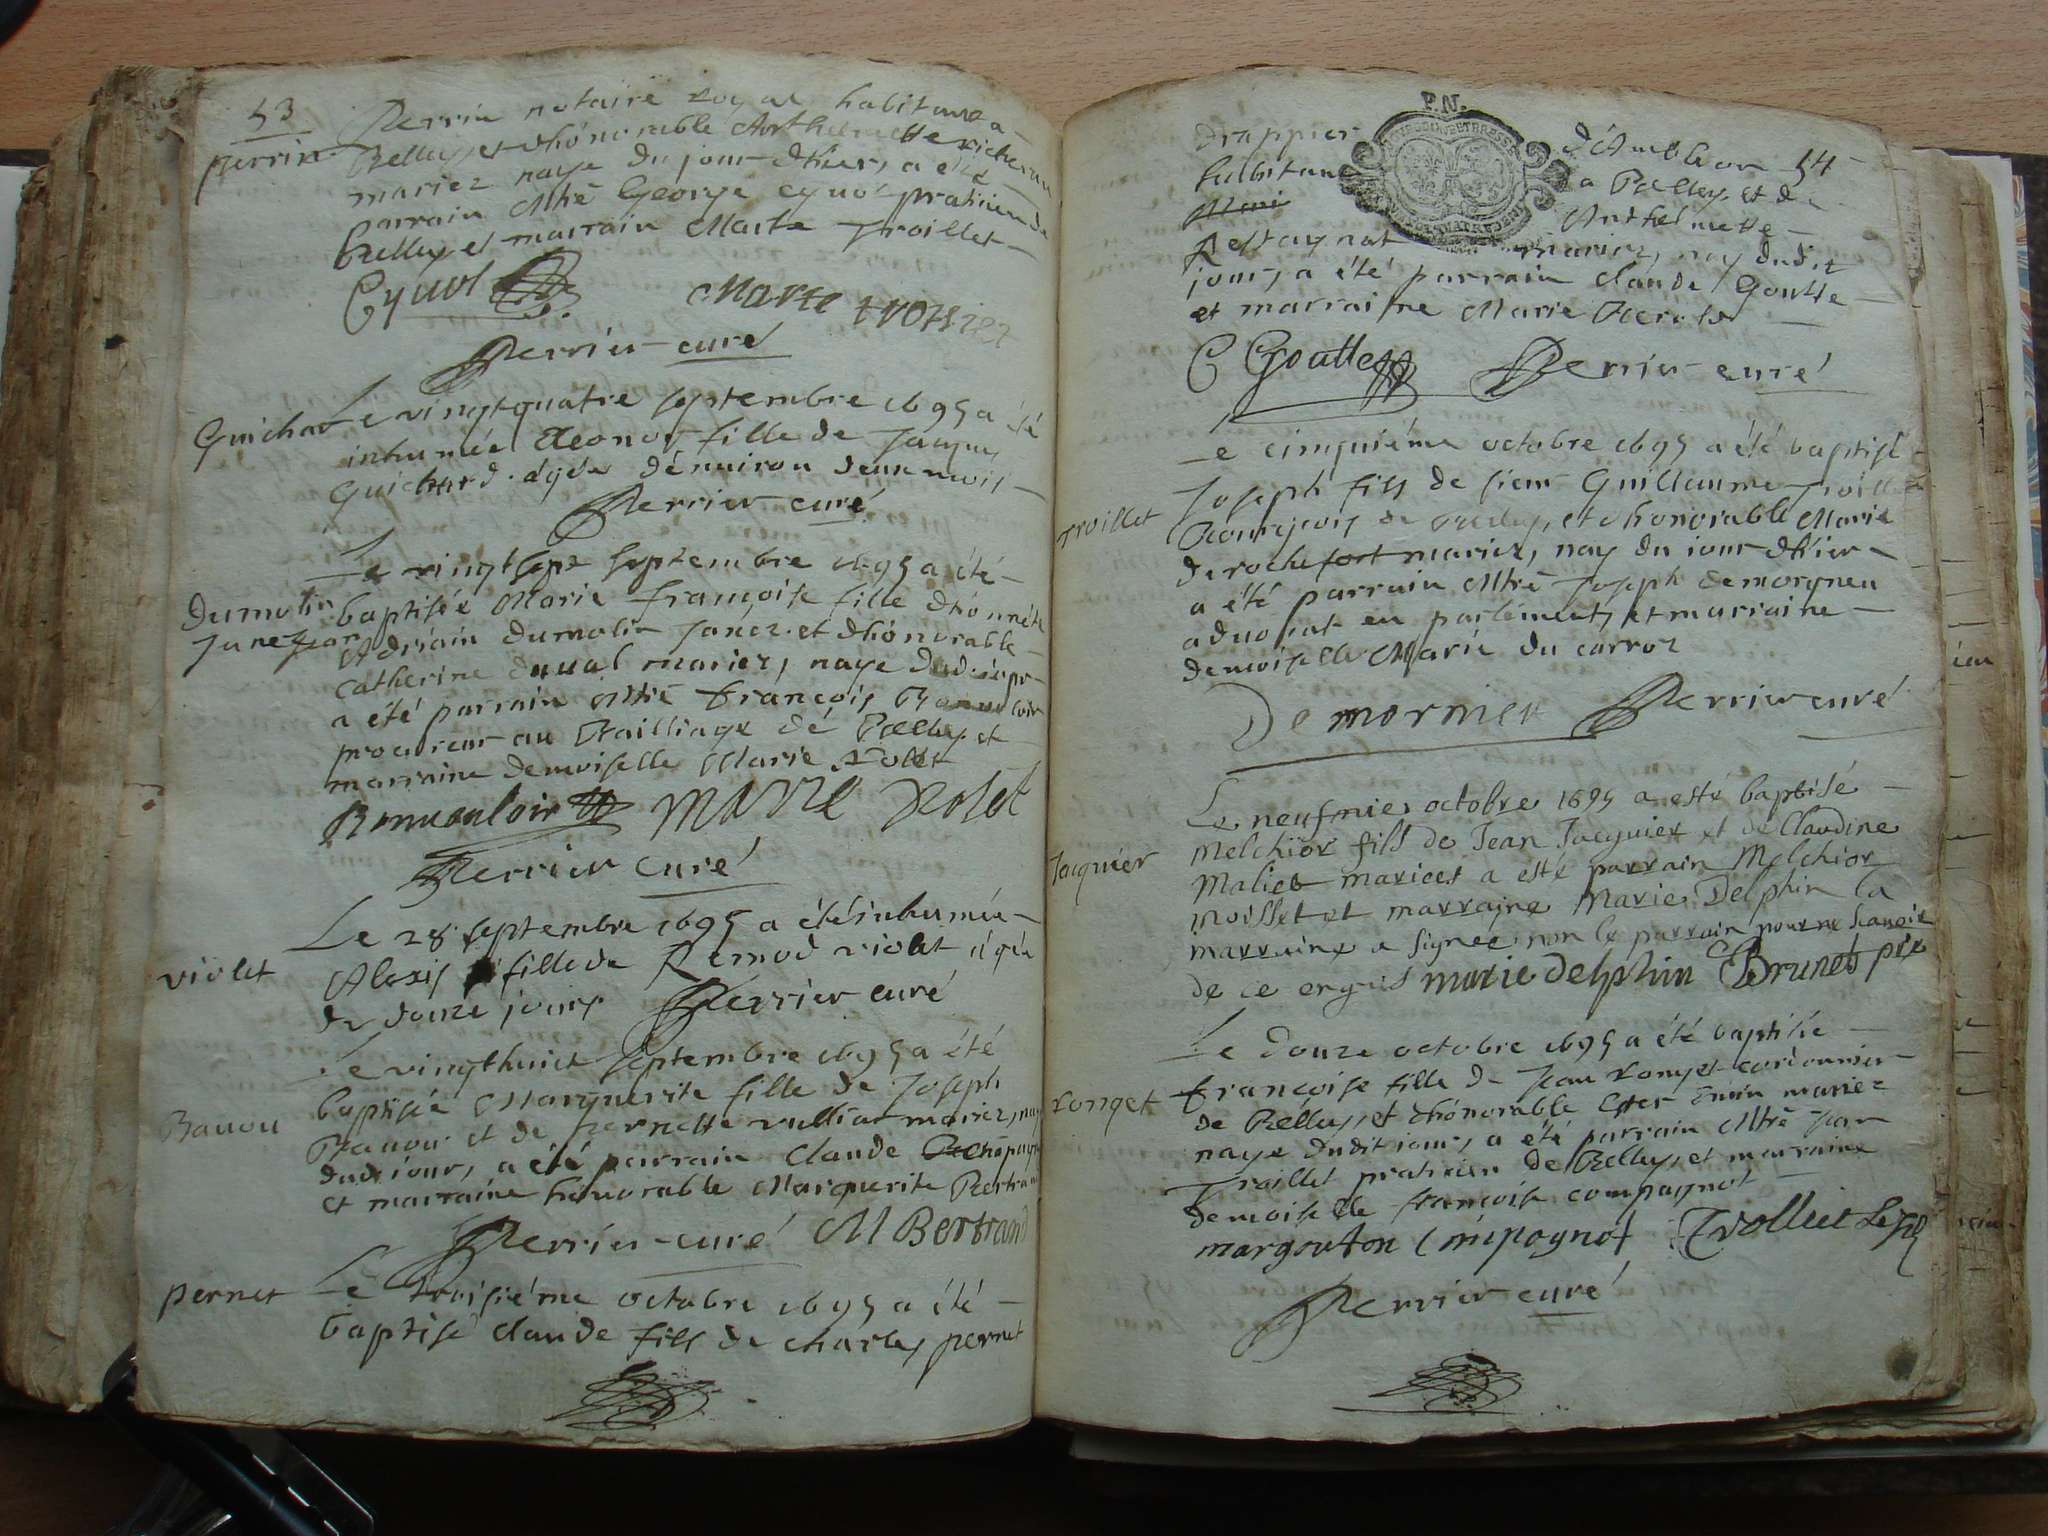 53
perrin
Perrin notaire royal habitant a
Belley, et dhonorable Anthelmette richerau
mariez naye du jour dhier, a été
parrain Mtre George Cynot praticien de
Belley et marraine Marte Troillet
Cynot Marte
Perrier curé
Guichar
Le vingtquatre septembre 1695 a été
inhumée Eleonor fille de Jacques
Guichard âgée dénuiron deux mois
Perrier curé
Le vingt sept septembre 1695 a été
dumolin
Janez
baptisée Marie françoise fille dhonnéte
Adriain dumolin Janez et dhonorable
Catherine duual mariez, naye dudit jour
a été parrain Mtre françois
procureur au Bailliage dé Belley et
marraine demoiselle Marie Rolet
Marie Rolet
Perrier curé
Le 28 septembre 1695 a été inhumée
violet
Alexis fille de Remod violet âgée
de douze jours Perrier curé
Le vingthuict septembre 1695 a été
Bauou
baptisée Marguerite fille de Joseph
Bauou et de pernette vulliat mariez, naye
dudit jour, a été parrain Claude
et marraine honorable Marguerite Bertrand
Perrier curé M Bertrand
pernet
Le troisiéme octobre 1695 a été
baptisé Claude fils de Charles pernet
P.N.
54
drappier d'Ambleon
habitant a Belley, et de
Anthelmette
mariez, nay dudit
jour, a été parrain Claude Goutte
et marraine Marie
C Goutte Perrier curé
Le cinquiéme octobre 1695 a été baptisé
troillet
Joseph fils de sieur Guillaume Troillet
Bourgeois de Belley, et dhonorable Marie
de rochefort mariez, nay du jour dhier
a été parrain Mtre Joseph demorgneu
aduocat en parlement, et marraine
demoiselle Marie du carroz
Demornieu Perrier curé
Le neufmies octobre 1695 a esté baptisé
Jacquier
Melchior fils de Jean Jacquier et de Claudine
Maliet mariees a esté parrain Melchior
Moisset et marraine Marie Delphin la
marraine a signée non le parrain pour ne scauoir
de ce enquis marie delphin Brunet ptre
Le douze octobre 1695 a été baptisée
ronget
françoise fille de Jean ronget cordonnier
de Belley, et dhonorable mariez
naye dudit jour, a été parrain Mtre Jean
Troillet praticien de Belley, et marraine
demoiselle françoise compagnot
Trolliet
Perrier curé